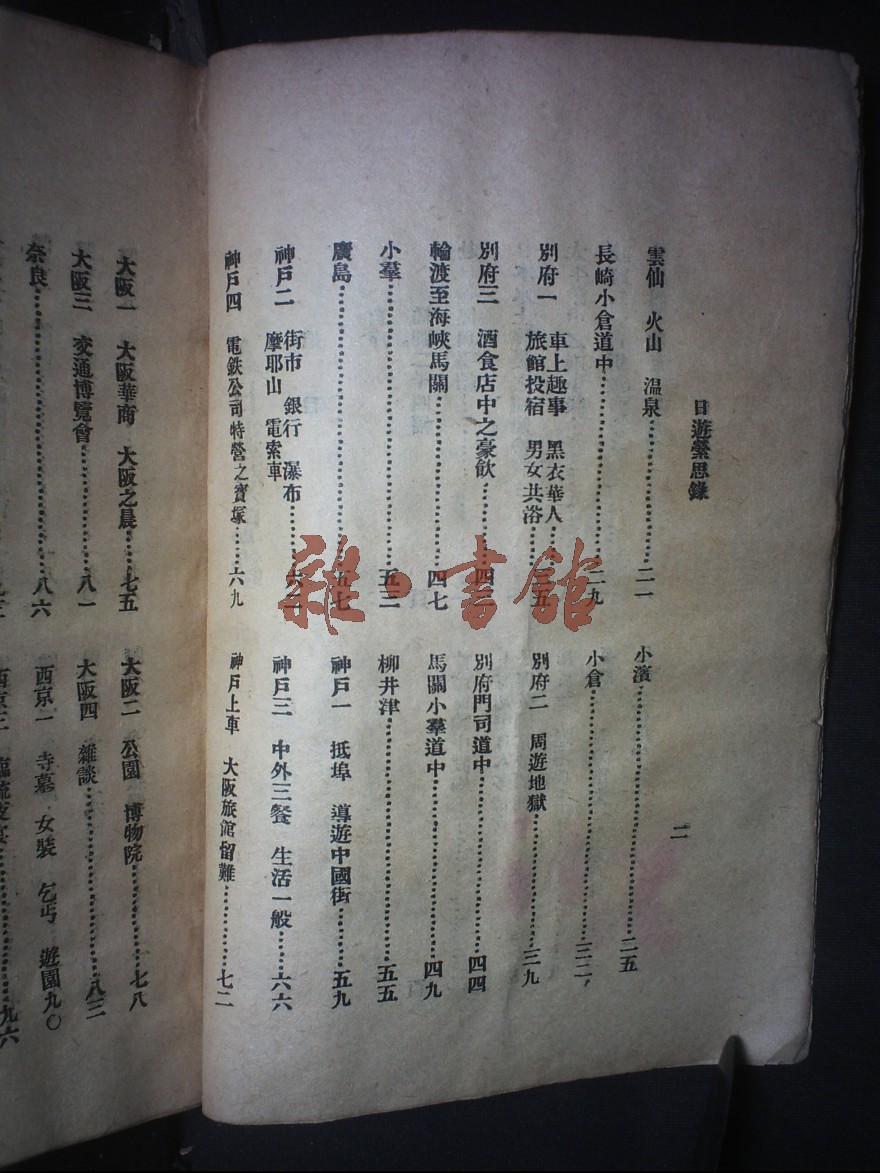 日遊縈思錄
二
雲仙　火山　溫泉…………二一
小濱…………二五
長崎小倉道中…………二九
小倉…………三二
別府一　車上趣事　黑衣華人
旅館投宿　男女共浴……三五
別府二　周遊地獄…………三九
別府三　酒食店中之豪飲……四二
別府門司道中…………四四
輪渡至海峽馬關…………四七
馬關小羣道中…………四九
小羣…………五二
柳井津…………五五
廣島…………五七
神戸一　抵埠　導遊中國街……五九
神戸二　街市　銀行　瀑布
摩耶山　電索車……六二
神戸三　中外三餐　生活一般……六六
神戸四　電鉄公司特營之寶塚……六九
神戸上車　大阪旅館留難……七二
大阪一　大阪華商　大阪之晨……七五
大阪二　公園　博物院……七八
大阪三　交通博覽會……八一
大阪四　雜談……八三
奈良…………八六
西京一　寺墓　女裝　乞丐　遊園九〇
九六
雜·書館